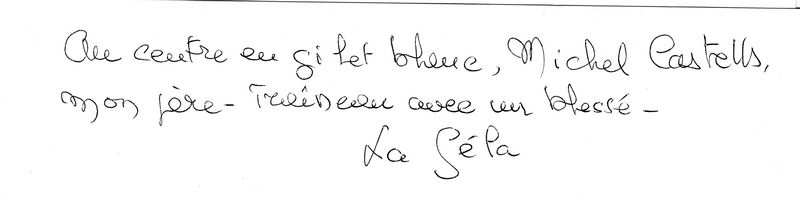 Au centre en gilet blanc, Michel Castells,
mon père - Traîneau avec un blessé -
La Géla